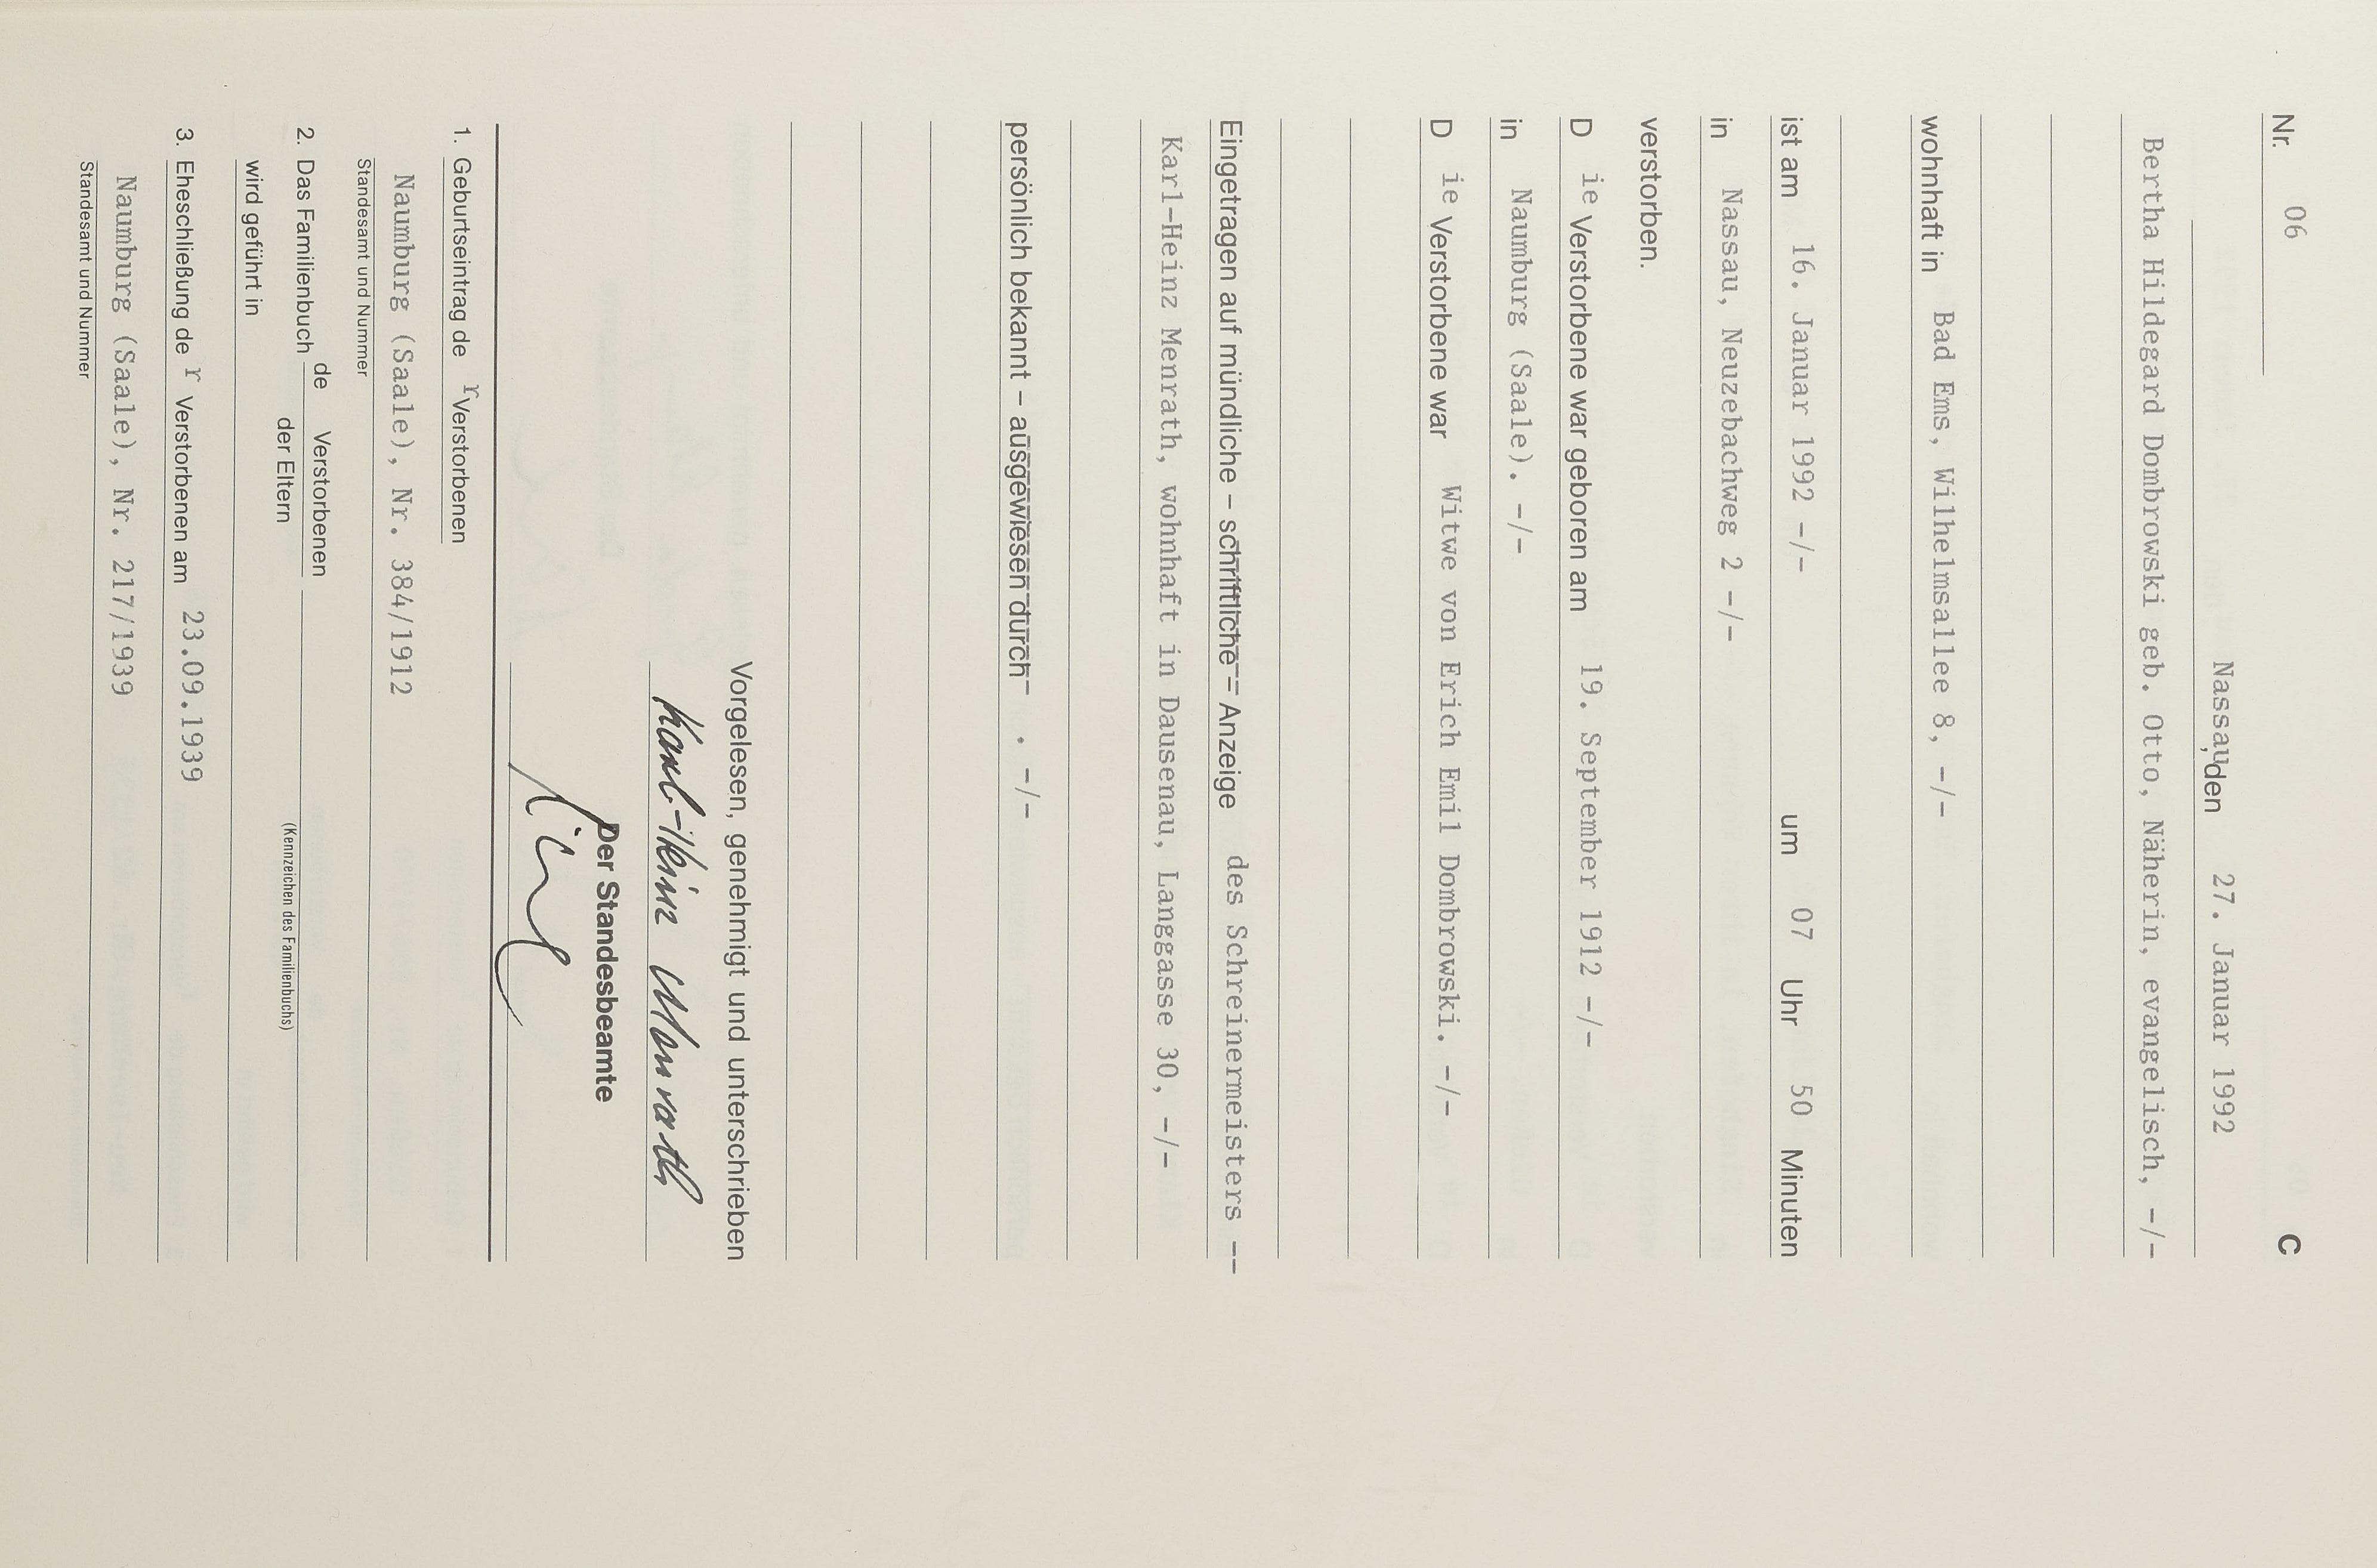 Nr. 06 C
Nassau, den 27. Januar 1992
Bertha Hildegard Dombrowski geb. Otto, Näherin, evangelisch, -/-
wohnhaft in Bad Ems, Wilhelmsallee 8, -/-
ist am 16. Januar 1992 -/- um 07 Uhr 50 Minuten
in Nassau, Neuzebachweg 2 -/-
verstorben.
D ie Verstorbene war geboren am 19. September 1912 -/-
in Naumburg (Saale). -/-
D ie Verstorbene war Witwe von Erich Emil Dombrowski. -/-
Eingetragen auf mündliche – schriftliche – Anzeige des Schreinermeisters --
Karl-Heinz Menrath, wohnhaft in Dausenau, Langgasse 30, -/-
persönlich bekannt – ausgewiesen durch . -/-
Vorgelesen, genehmigt und unterschrieben
Karl-Heinz Menrath
Der Standesbeamte
1. Geburtseintrag de r Verstorbenen
Naumburg (Saale), Nr. 384/1912
Standesamt und Nummer
2. Das Familienbuch de Verstorbenen
der Eltern
(Kennzeichen des Familienbuchs)
wird geführt in
3. Eheschließung de r Verstorbenen am 23.09.1939
Naumburg (Saale), Nr. 217/1939
Standesamt und Nummer